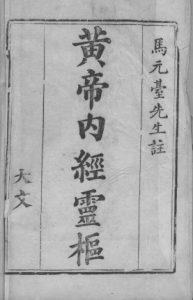 馬元臺先生註
黃帝内經靈樞
大文